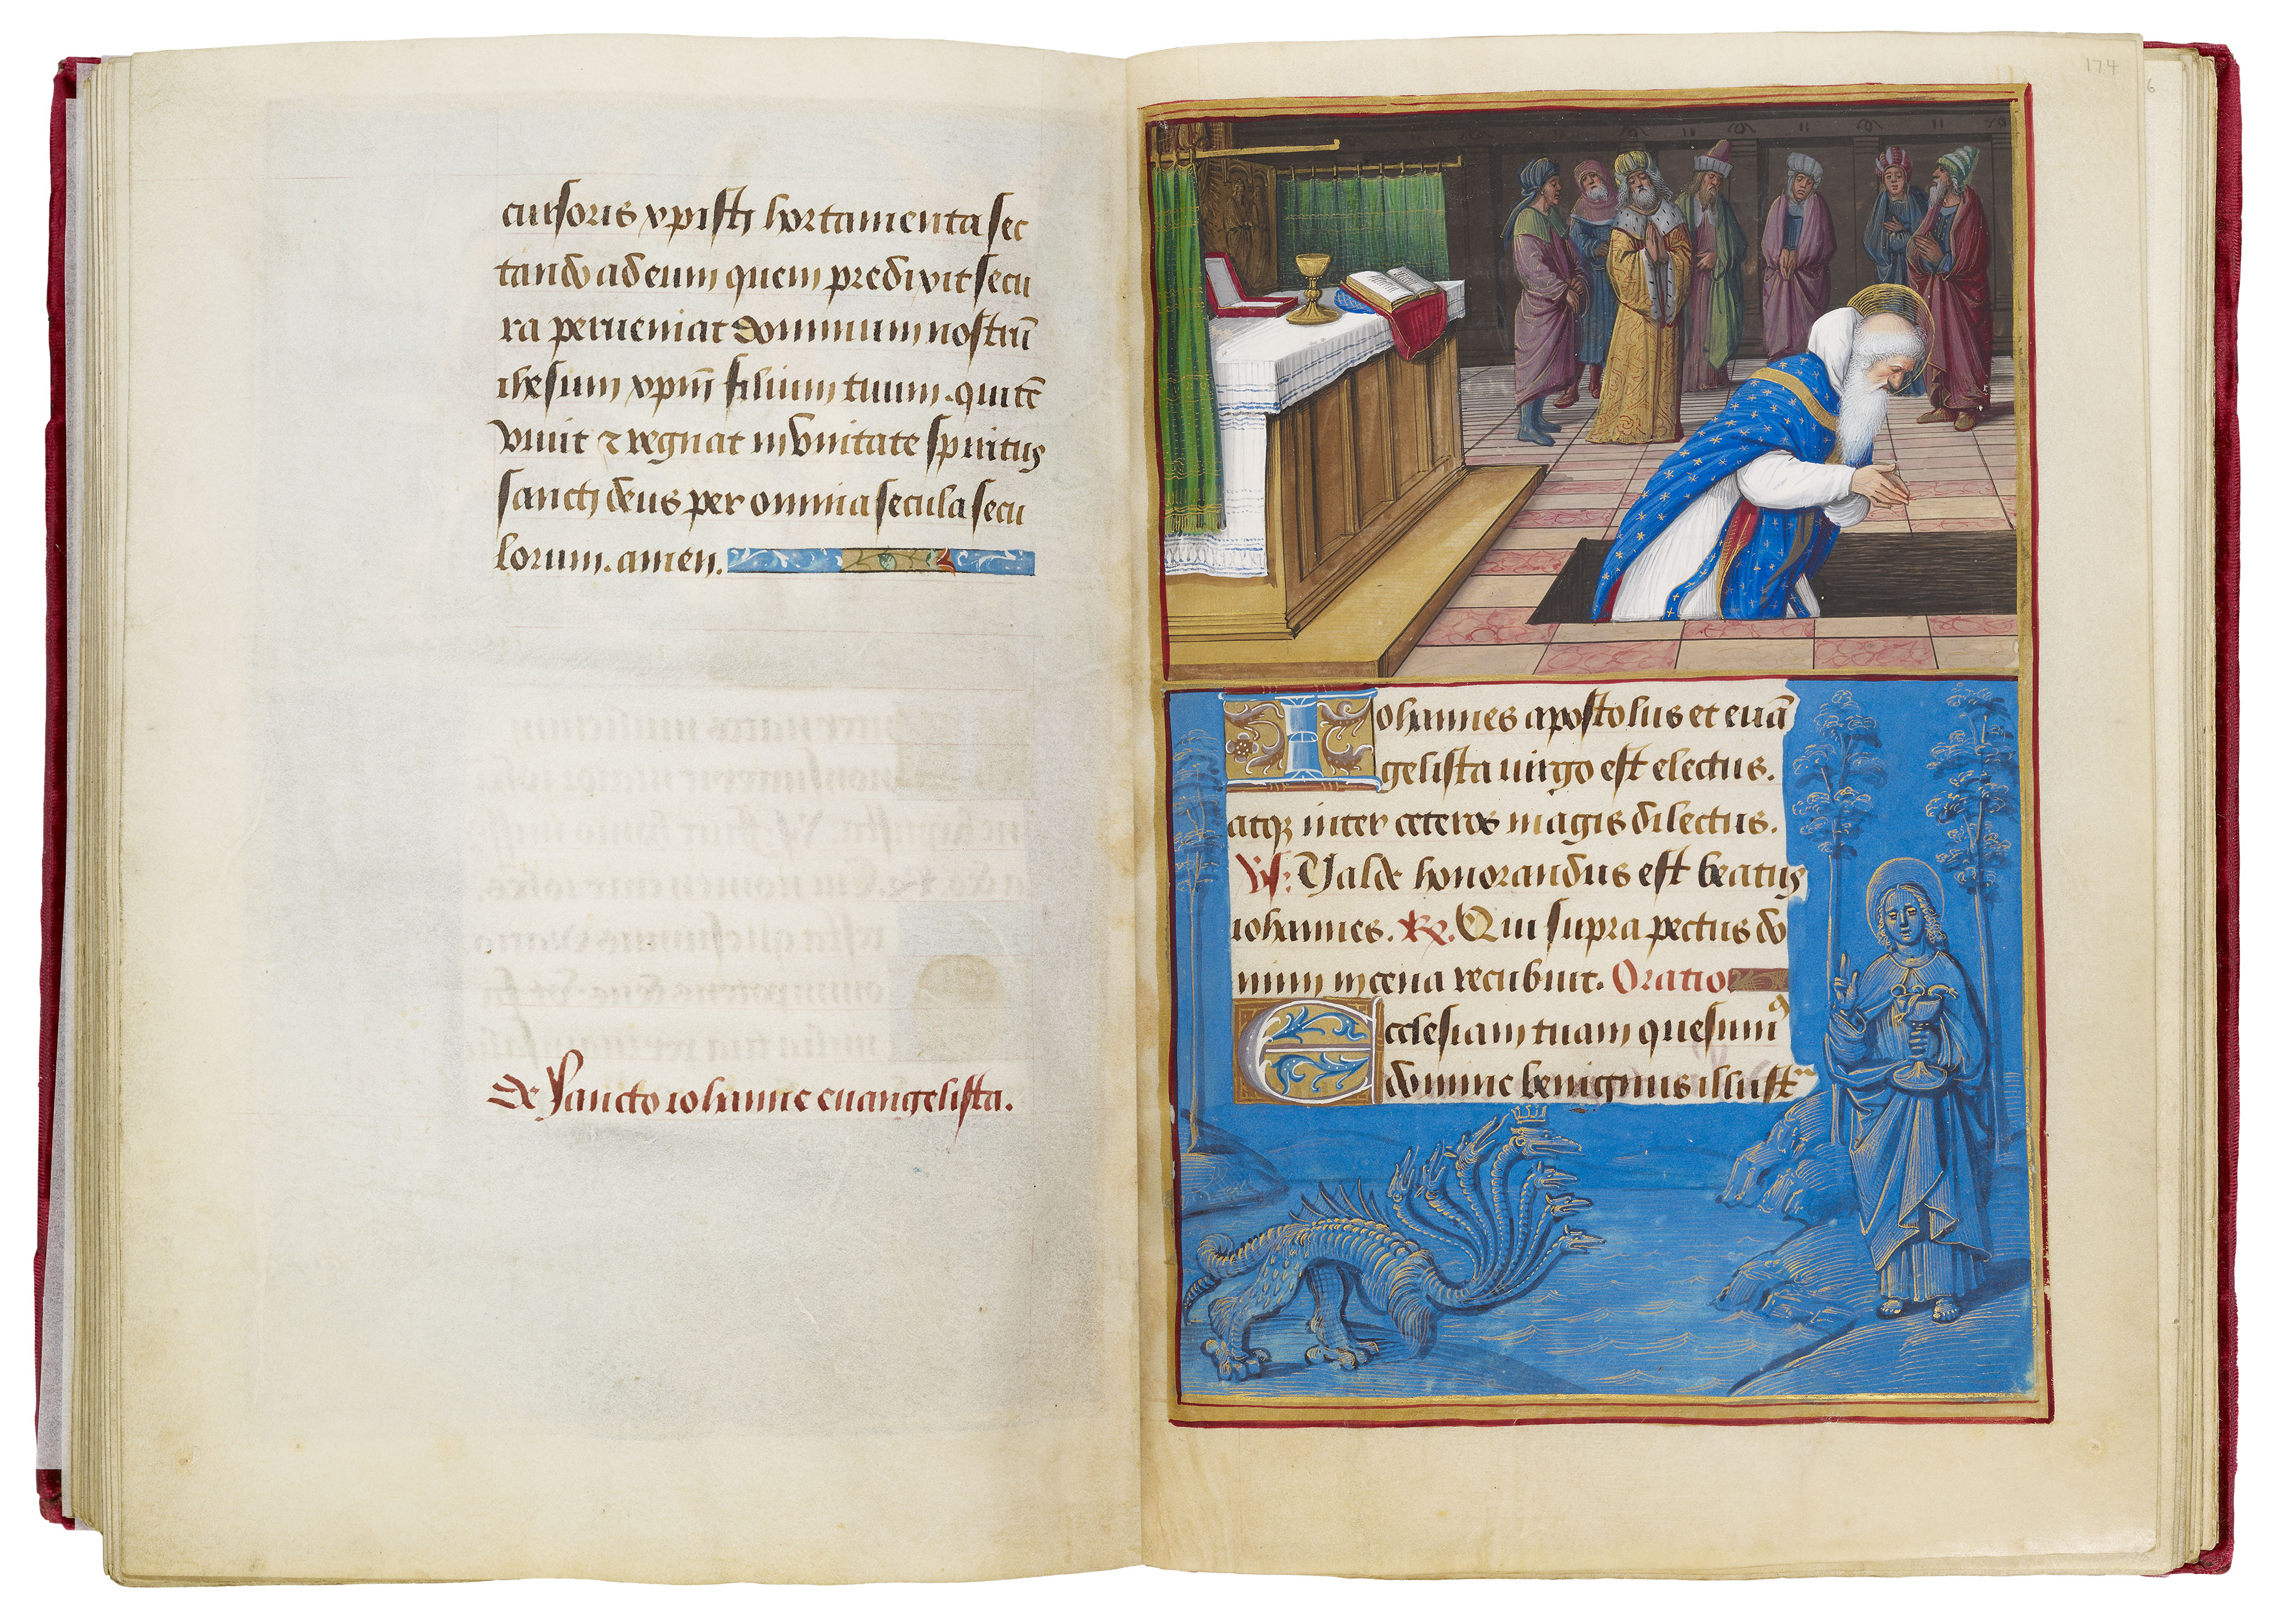 cursoris xpisti hortamenta sec
tando ad eum quem predixit secu
ra perueniat dominum nostrū
ihesum xpm̄ filium tuum. qui tē
viuit ⁊ regnat in vnitate spiritus
sancti deus per omnia secula secu
lorum. amen.
De sancto iohanne euangelista.
174
Iohannes apostolus et euā
gelista uirgo est electus.
atqꝫ inter ceteros magis dilectus.
℣: Valde honorandus est beatus
iohannes. ℟. Qui supra pectus do
mini in cena recubuit. Oratio
Ecclesiam tuam quesumꝰ
domine benignus illustᵃ
6